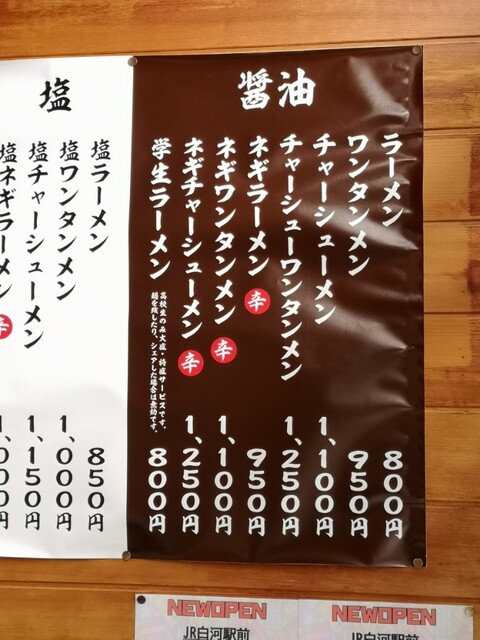 醤油
ラーメン 800円
ワンタンメン 950円
チャーシューメン 1,100円
チャーシューワンタンメン 1,250円
ネギラーメン 辛 950円
ネギワンタンメン 辛 1,100円
ネギチャーシューメン 辛 1,250円
学生ラーメン 800円
高校生のみ大盛・特盛サービスです。
麺を残したり、シェアした場合は
塩
塩ラーメン 850円
塩ワンタンメン 1,000円
塩チャーシューメン 1,150円
塩ネギラーメン 辛 1,000円
NEWOPEN
JR白河駅前
NEWOPEN
JR白河駅前